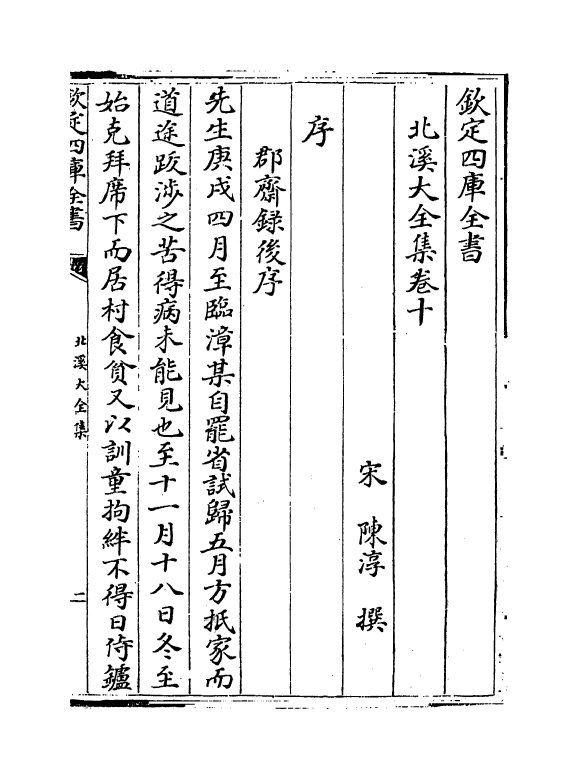 欽定四庫全書
北溪大全集卷十
宋　陳淳　撰
序
郡齋錄後序
先生庚戌四月至臨漳某自罷省試歸五月方抵家而
道途跋涉之苦得病未能見也至十一月十八日冬至
始克拜席下而居村食貧又以訓童拘絆不得日侍鑪
欽定四庫全書
北溪大全集
二